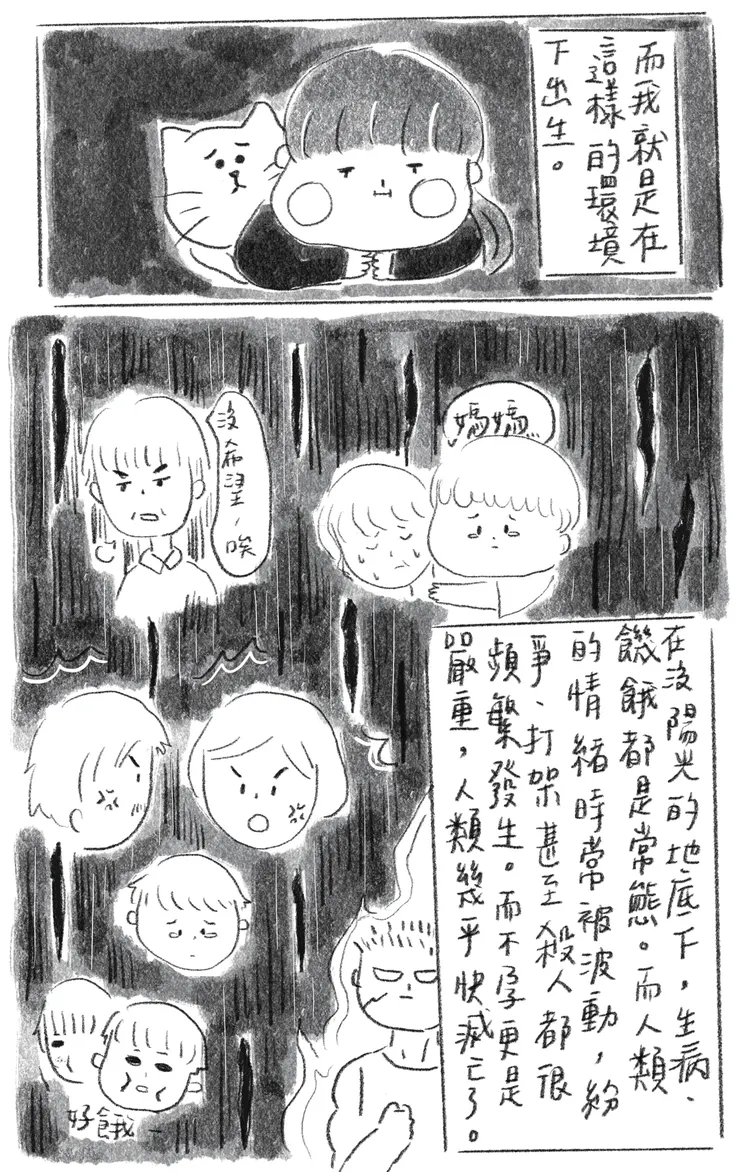 而我就是在
這樣的環境
下出生。
媽媽…
沒希望，唉
在沒陽光的地底下，生病、
饑餓都是常態。而人類
的情緒時常被波動，紛
爭、打架甚至殺人都很
頻繁發生。而不孕更是
嚴重，人類幾乎快滅亡了。
好餓—